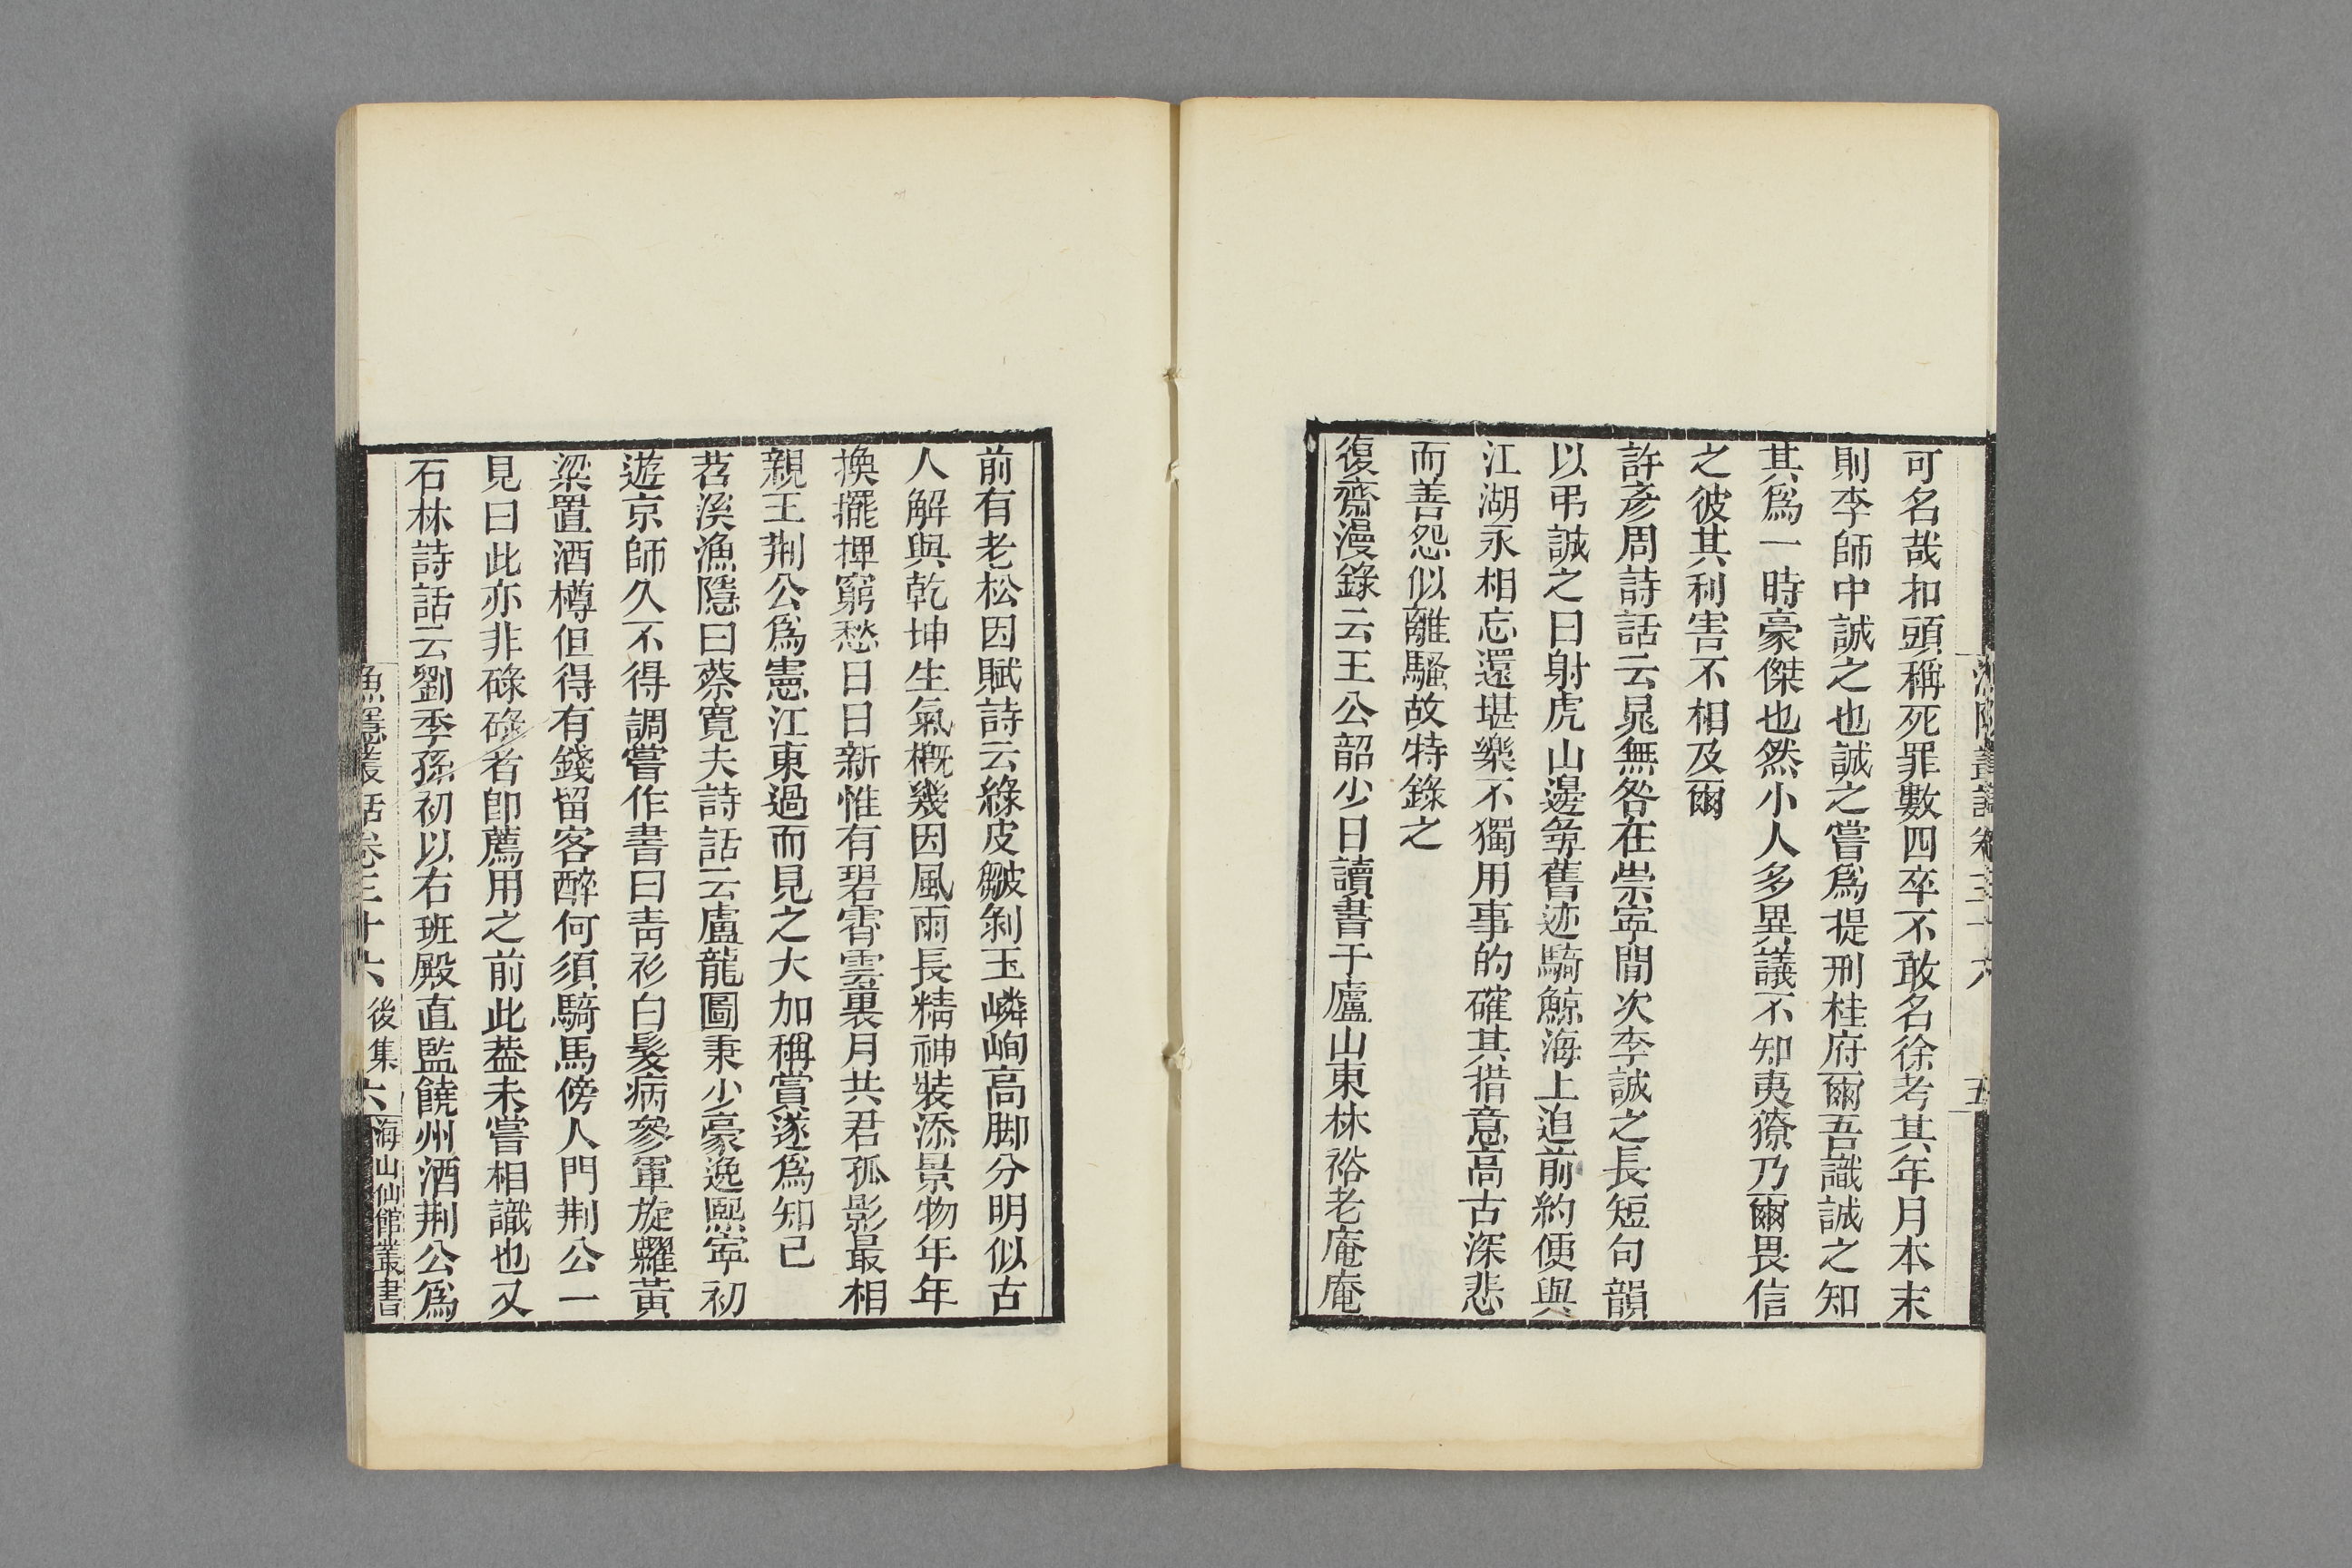 可名哉扣頭稱死罪數四卒不敢名徐考其年月本末
則李師中誠之也誠之嘗爲提刑桂府爾吾識誠之知
其爲一時豪傑也然小人多異議不知夷獠乃爾畏信
之彼其利害不相及爾
許彥周詩話云晁無咎在崇寧間次李誠之長短句韻
以弔誠之曰射虎山邊尋舊迹騎鯨海上追前約便與
江湖永相忘還堪樂不獨用事的確其措意高古深悲
而善怨似離騷故特錄之
復齋漫錄云王公韶少日讀書于廬山東林裕老庵庵
前有老松因賦詩云綠皮皺剝玉嶙峋高脚分明似古
人解與乾坤生氣槪幾因風雨長精神裝添景物年年
換擺捭窮愁日日新惟有碧霄雲裏月共君孤影最相
親王荆公爲憲江東過而見之大加稱賞遂爲知己
苕溪漁隱曰蔡寬夫詩話云盧龍圖秉少豪逸熙寧初
遊京師久不得調嘗作書曰靑衫白髮病參軍旋糶黃
粱置酒樽但得有錢留客醉何須騎馬傍人門荆公一
見曰此亦非碌碌者卽薦用之前此葢未嘗相識也又
石林詩話云劉季孫初以右班殿直監饒州酒荆公爲
漁隱叢話卷三十六 後集 六 海山仙館叢書